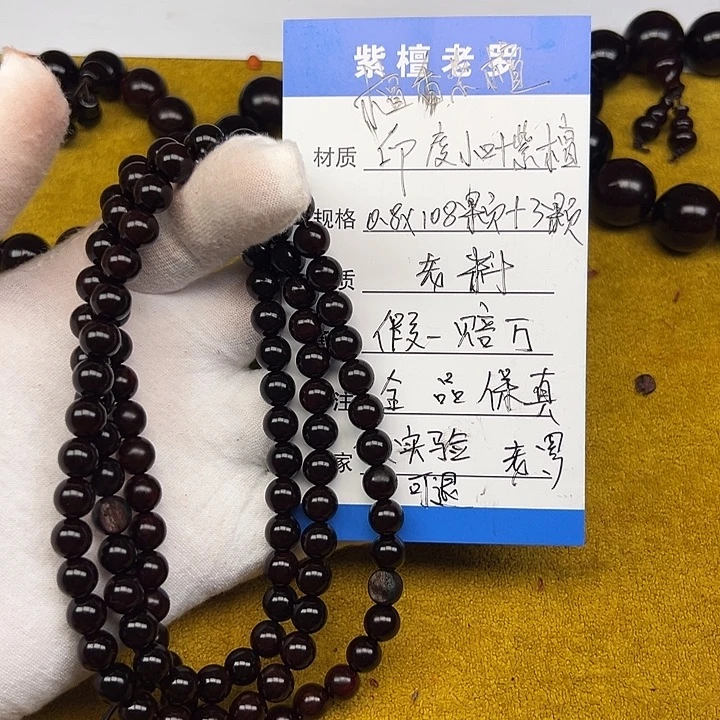 紫檀老器
檀香紫檀
材质 印度小叶紫檀
规格 0.8x108颗+3颗
质 老料
假一赔万
注 全品保真
家 实验 老周
可退